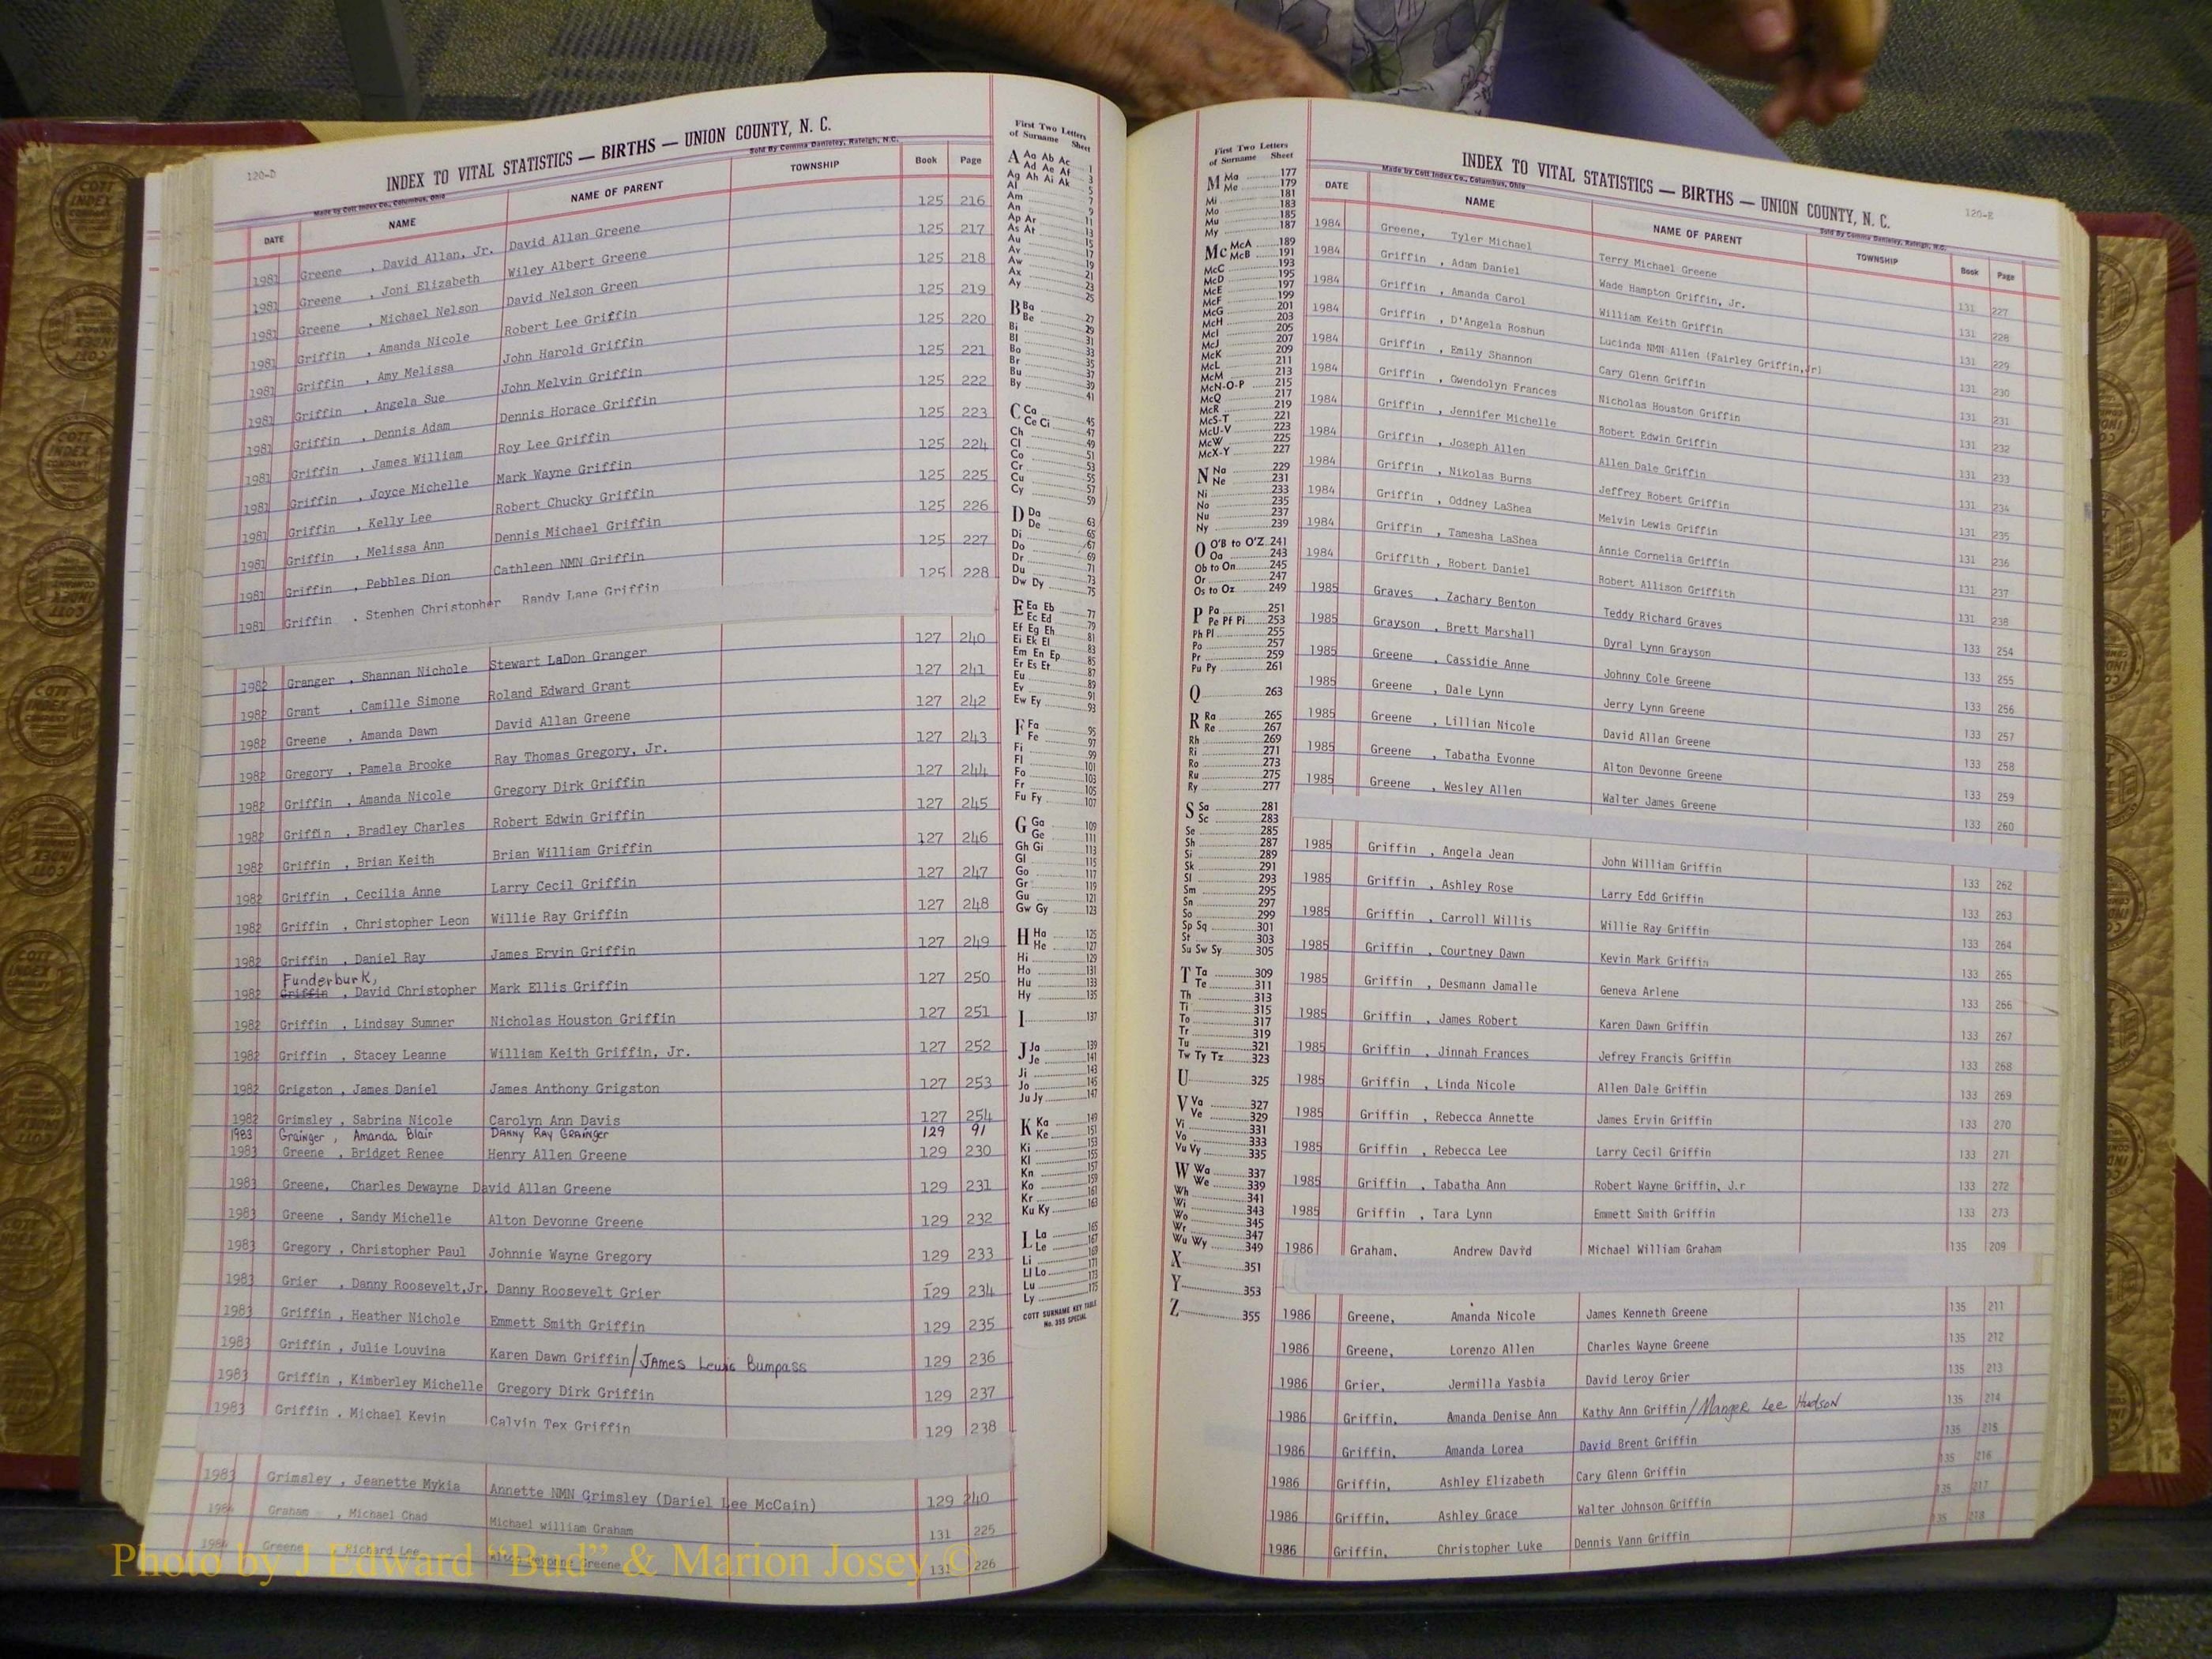 120-D
INDEX TO VITAL STATISTICS — BIRTHS — UNION COUNTY, N. C.
Made by Cott Index Co., Columbus, Ohio Sold By Comma Danieley, Raleigh, N.C.
DATE NAME NAME OF PARENT TOWNSHIP Book Page
1981 Greene , David Allan, Jr. David Allan Greene 125 216
1981 Greene , Joni Elizabeth Wiley Albert Greene 125 217
1981 Greene , Michael Nelson David Nelson Green 125 218
1981 Griffin , Amanda Nicole Robert Lee Griffin 125 219
1981 Griffin , Amy Melissa John Harold Griffin 125 220
1981 Griffin , Angela Sue John Melvin Griffin 125 221
1981 Griffin , Dennis Adam Dennis Horace Griffin 125 222
1981 Griffin , James William Roy Lee Griffin 125 223
1981 Griffin , Joyce Michelle Mark Wayne Griffin 125 224
1981 Griffin , Kelly Lee Robert Chucky Griffin 125 225
1981 Griffin , Melissa Ann Dennis Michael Griffin 125 226
1981 Griffin , Pebbles Dion Cathleen NMN Griffin 125 227
1981 Griffin , Stephen Christopher Randy Lane Griffin 125 228
1982 Granger , Shannan Nichole Stewart LaDon Granger 127 240
1982 Grant , Camille Simone Roland Edward Grant 127 241
1982 Greene , Amanda Dawn David Allan Greene 127 242
1982 Gregory , Pamela Brooke Ray Thomas Gregory, Jr. 127 243
1982 Griffin , Amanda Nicole Gregory Dirk Griffin 127 244
1982 Griffin , Bradley Charles Robert Edwin Griffin 127 245
1982 Griffin , Brian Keith Brian William Griffin 127 246
1982 Griffin , Cecilia Anne Larry Cecil Griffin 127 247
1982 Griffin , Christopher Leon Willie Ray Griffin 127 248
1982 Griffin , Daniel Ray James Ervin Griffin 127 249
Funderburk,
1982 Griffin , David Christopher Mark Ellis Griffin 127 250
1982 Griffin , Lindsay Sumner Nicholas Houston Griffin 127 251
1982 Griffin , Stacey Leanne William Keith Griffin, Jr. 127 252
1982 Grigston , James Daniel James Anthony Grigston 127 253
1982 Grimsley , Sabrina Nicole Carolyn Ann Davis 127 254
1983 Grainger , Amanda Blair DANNY RAY GRAINGER 129 91
1983 Greene , Bridget Renee Henry Allen Greene 129 230
1983 Greene, Charles Dewayne David Allan Greene 129 231
1983 Greene , Sandy Michelle Alton Devonne Greene 129 232
1983 Gregory , Christopher Paul Johnnie Wayne Gregory 129 233
1983 Grier , Danny Roosevelt,Jr. Danny Roosevelt Grier 129 234
1983 Griffin , Heather Nichole Emmett Smith Griffin 129 235
1983 Griffin , Julie Louvina Karen Dawn Griffin/JAmes Lewis Bumpass 129 236
1983 Griffin , Kimberley Michelle Gregory Dirk Griffin 129 237
1983 Griffin . Michael Kevin Calvin Tex Griffin 129 238
1983 Grimsley , Jeanette Mykia Annette NMN Grimsley (Dariel Lee McCain) 129 240
1984 Graham , Michael Chad Michael William Graham 131 225
1984 Greene , Richard Lee Alton Devonne Greene 131 226
First Two Letters
of Surname Sheet
A Aa Ab Ac 1
Ad Ae Af 3
Ag Ah Ai Ak 5
Al 7
Am 9
An 11
Ap Ar 13
As At 15
Au 17
Av 19
Aw 21
Ax 23
Ay 25
B Ba 27
Be 29
Bi 31
Bl 33
Bo 35
Br 37
Bu 39
By 41
C Ca 45
Ce Ci 47
Ch 49
Cl 51
Co 53
Cr 55
Cu 57
Cy 59
D Da 63
De 65
Di 67
Do 69
Dr 71
Du 73
Dw Dy 75
E Ea Eb 77
Ec Ed 79
Ef Eg Eh 81
Ei Ek El 83
Em En Ep 85
Er Es Et 87
Eu 89
Ev 91
Ew Ey 93
F Fa 95
Fe 97
Fi 99
Fl 101
Fo 103
Fr 105
Fu Fy 107
G Ga 109
Ge 111
Gh Gi 113
Gl 115
Go 117
Gr 119
Gu 121
Gw Gy 123
H Ha 125
He 127
Hi 129
Ho 131
Hu 133
Hy 135
I 137
J Ja 139
Je 141
Ji 143
Jo 145
Ju Jy 147
K Ka 149
Ke 151
Ki 153
Kl 155
Kn 157
Ko 159
Kr 161
Ku Ky 163
L La 165
Le 167
Li 169
Ll Lo 171
Lu 173
Ly 175
COTT SURNAME KEY TABLE
No. 355 SPECIAL
First Two Letters
of Surname Sheet
M Ma 177
Me 179
Mi 181
Mo 183
Mu 185
My 187
Mc McA 189
McB 191
McC 193
McD 195
McE 197
McF 199
McG 201
McH 203
McI 205
McJ 207
McK 209
McL 211
McM 213
McN-O-P 215
McQ 217
McR 219
McS-T 221
McU-V 223
McW 225
McX-Y 227
N Na 229
Ne 231
Ni 233
No 235
Nu 237
Ny 239
O O'B to O'Z 241
Oa 243
Ob to On 245
Or 247
Os to Oz 249
P Pa 251
Pe Pf Pi 253
Ph Pl 255
Po 257
Pr 259
Pu Py 261
Q 263
R Ra 265
Re 267
Rh 269
Ri 271
Ro 273
Ru 275
Ry 277
S Sa 281
Sc 283
Se 285
Sh 287
Si 289
Sk 291
Sl 293
Sm 295
Sn 297
So 299
Sp Sq 301
St 303
Su Sw Sy 305
T Ta 309
Te 311
Th 313
Ti 315
To 317
Tr 319
Tu 321
Tw Ty Tz 323
U 325
V Va 327
Ve 329
Vi 331
Vo 333
Vu Vy 335
W Wa 337
We 339
Wh 341
Wi 343
Wo 345
Wr 347
Wu Wy 349
X 351
Y 353
Z 355
120-E
INDEX TO VITAL STATISTICS — BIRTHS — UNION COUNTY, N. C.
Made by Cott Index Co., Columbus, Ohio Sold By Comma Danieley, Raleigh, N.C.
DATE NAME NAME OF PARENT TOWNSHIP Book Page
1984 Greene, Tyler Michael Terry Michael Greene 131 227
1984 Griffin , Adam Daniel Wade Hampton Griffin, Jr. 131 228
1984 Griffin , Amanda Carol William Keith Griffin 131 229
1984 Griffin , D'Angela Roshun Lucinda NMN Allen (Fairley Griffin,Jr) 131 230
1984 Griffin , Emily Shannon Cary Glenn Griffin 131 231
1984 Griffin , Gwendolyn Frances Nicholas Houston Griffin 131 232
1984 Griffin , Jennifer Michelle Robert Edwin Griffin 131 233
1984 Griffin , Joseph Allen Allen Dale Griffin 131 234
1984 Griffin , Nikolas Burns Jeffrey Robert Griffin 131 235
1984 Griffin , Oddney LaShea Melvin Lewis Griffin 131 236
1984 Griffin , Tamesha LaShea Annie Cornelia Griffin 131 237
1984 Griffith , Robert Daniel Robert Allison Griffith 131 238
1985 Graves , Zachary Benton Teddy Richard Graves 133 254
1985 Grayson , Brett Marshall Dyral Lynn Grayson 133 255
1985 Greene , Cassidie Anne Johnny Cole Greene 133 256
1985 Greene , Dale Lynn Jerry Lynn Greene 133 257
1985 Greene , Lillian Nicole David Allan Greene 133 258
1985 Greene , Tabatha Evonne Alton Devonne Greene 133 259
1985 Greene , Wesley Allen Walter James Greene 133 260
1985 Griffin , Angela Jean John William Griffin 133 262
1985 Griffin , Ashley Rose Larry Edd Griffin 133 263
1985 Griffin , Carroll Willis Willie Ray Griffin 133 264
1985 Griffin , Courtney Dawn Kevin Mark Griffin 133 265
1985 Griffin , Desmann Jamalle Geneva Arlene 133 266
1985 Griffin , James Robert Karen Dawn Griffin 133 267
1985 Griffin , Jinnah Frances Jefrey Francis Griffin 133 268
1985 Griffin , Linda Nicole Allen Dale Griffin 133 269
1985 Griffin , Rebecca Annette James Ervin Griffin 133 270
1985 Griffin , Rebecca Lee Larry Cecil Griffin 133 271
1985 Griffin , Tabatha Ann Robert Wayne Griffin, J.r 133 272
1985 Griffin , Tara Lynn Emmett Smith Griffin 133 273
1986 Graham, Andrew David Michael William Graham 135 209
1986 Greene, Amanda Nicole James Kenneth Greene 135 211
1986 Greene, Lorenzo Allen Charles Wayne Greene 135 212
1986 Grier, Jermilla Yasbia David Leroy Grier 135 213
1986 Griffin, Amanda Denise Ann Kathy Ann Griffin/Manger Lee Hudson 135 214
1986 Griffin, Amanda Lorea David Brent Griffin 135 215
1986 Griffin, Ashley Elizabeth Cary Glenn Griffin 135 216
1986 Griffin, Ashley Grace Walter Johnson Griffin 135 217
1986 Griffin, Christopher Luke Dennis Vann Griffin 135 218
Photo by J Edward “Bud” & Marion Josey ©